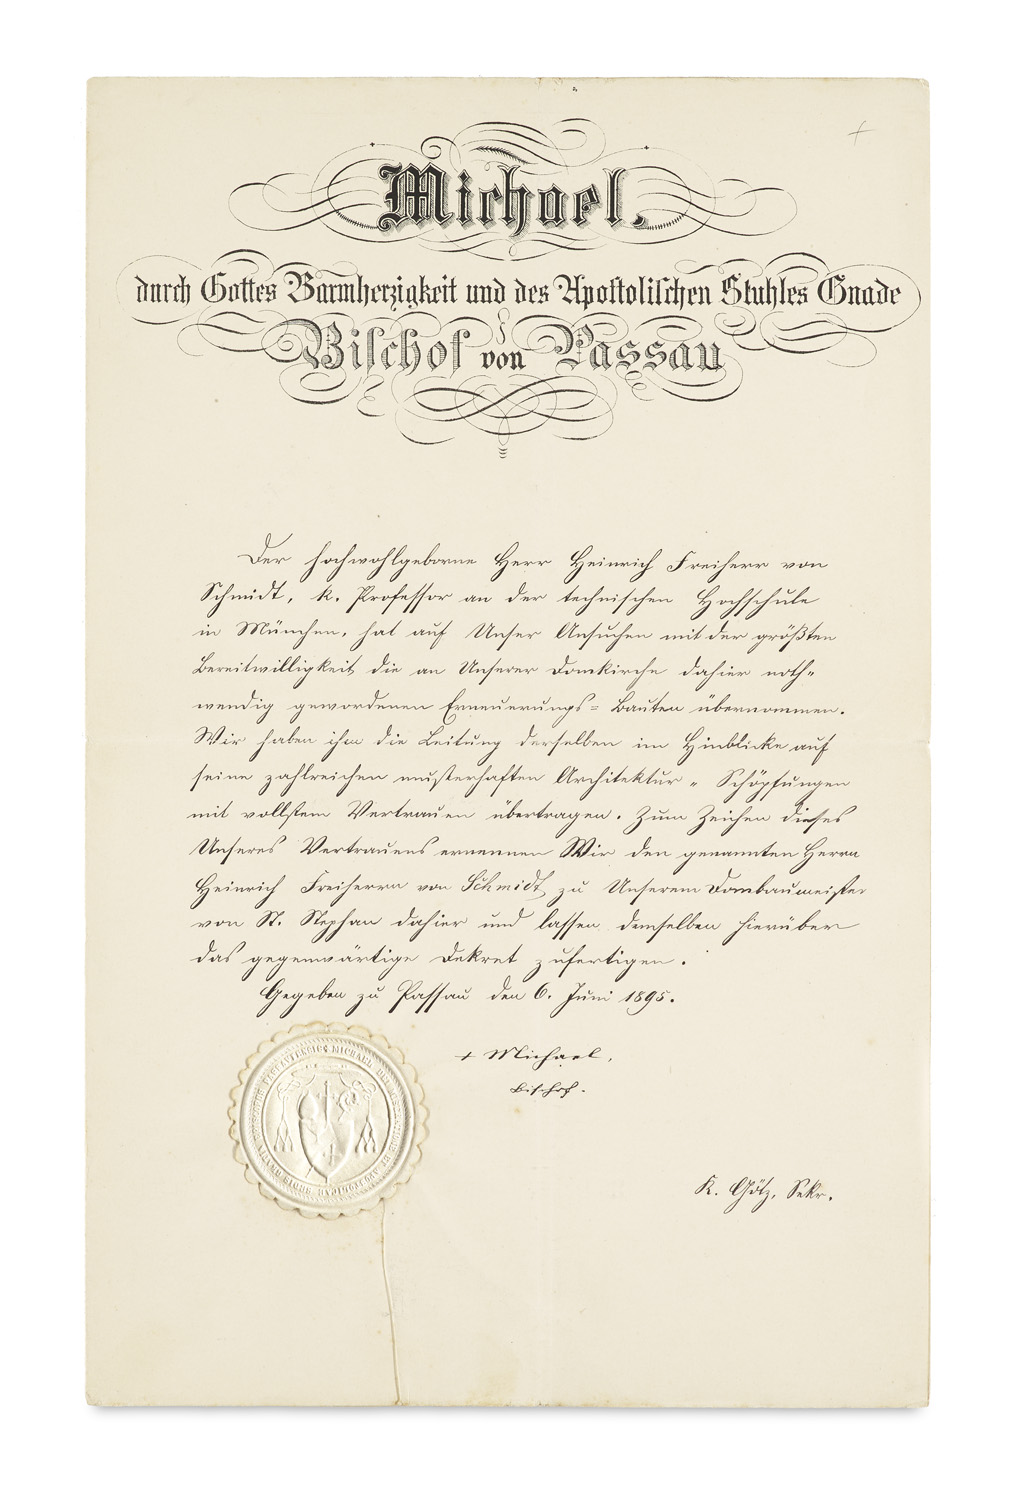 Michael,
durch Gottes Barmherzigkeit und des Apostolischen Stuhles Gnade
Bischof von Passau
Der hochwohlgeborne Herr Heinrich Freiherr von
Schmidt, k. Professor an der technischen Hochschule
in München, hat auf Unser Ansuchen mit der größten
Bereitwilligkeit die an Unserer Domkirche dahier noth-
wendig gewordenen Erneuerungs-Bauten übernommen.
Wir haben ihm die Leitung derselben im Hinblicke auf
seine zahlreichen musterhaften Architektur-Schöpfungen
mit vollstem Vertrauen übertragen. Zum Zeichen dieses
Unseres Vertrauens ernennen Wir den genannten Herrn
Heinrich Freiherrn von Schmidt zu Unserem Dombaumeister
von St. Stephan dahier und lassen demselben hierüber
das gegenwärtige Dekret zufertigen.
Gegeben zu Passau den 6. Juni 1895.
+ Michael,
Bischof.
MICHAEL DEI
ET APOSTOLICAE SEDIS GRATIA EPISCOPUS PASSAVIENSIS
K. Götz, Sekr.